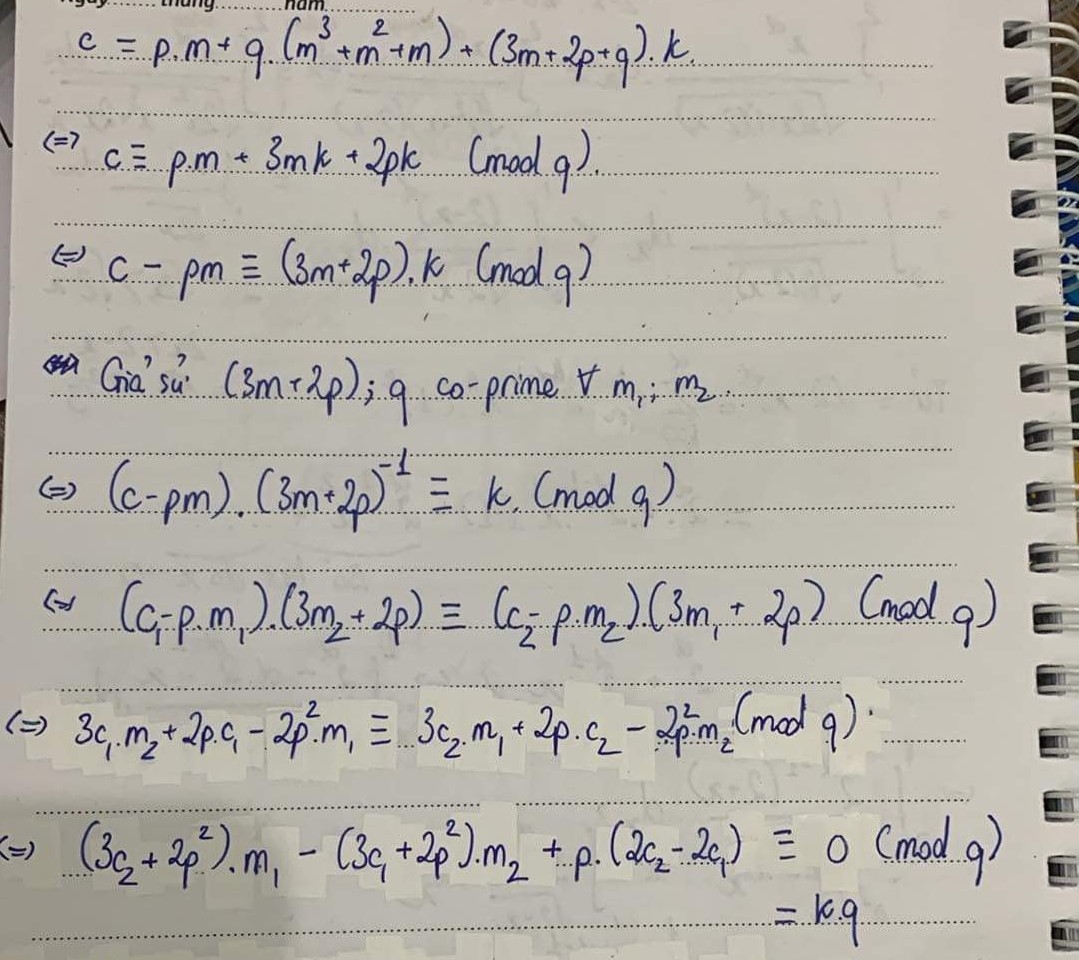 Ngày tháng năm
c = p.m + q.(m³ + m² + m) + (3m + 2p + q).k.
(=) c ≡ p.m + 3mk + 2pk (mod q).
(=) c - pm ≡ (3m + 2p).k (mod q)
Giả sử (3m + 2p); q co-prime ∀ m₁; m₂.
(=) (c - pm).(3m + 2p)⁻¹ ≡ k (mod q)
(=) (c₁ - p.m₁).(3m₂ + 2p) ≡ (c₂ - p.m₂)(3m₁ + 2p) (mod q)
(=) 3c₁.m₂ + 2p.c₁ - 2p².m₁ ≡ 3c₂.m₁ + 2p.c₂ - 2p².m₂ (mod q).
(=) (3c₂ + 2p²).m₁ - (3c₁ + 2p²).m₂ + p.(2c₂ - 2c₁) ≡ 0 (mod q)
= k.q